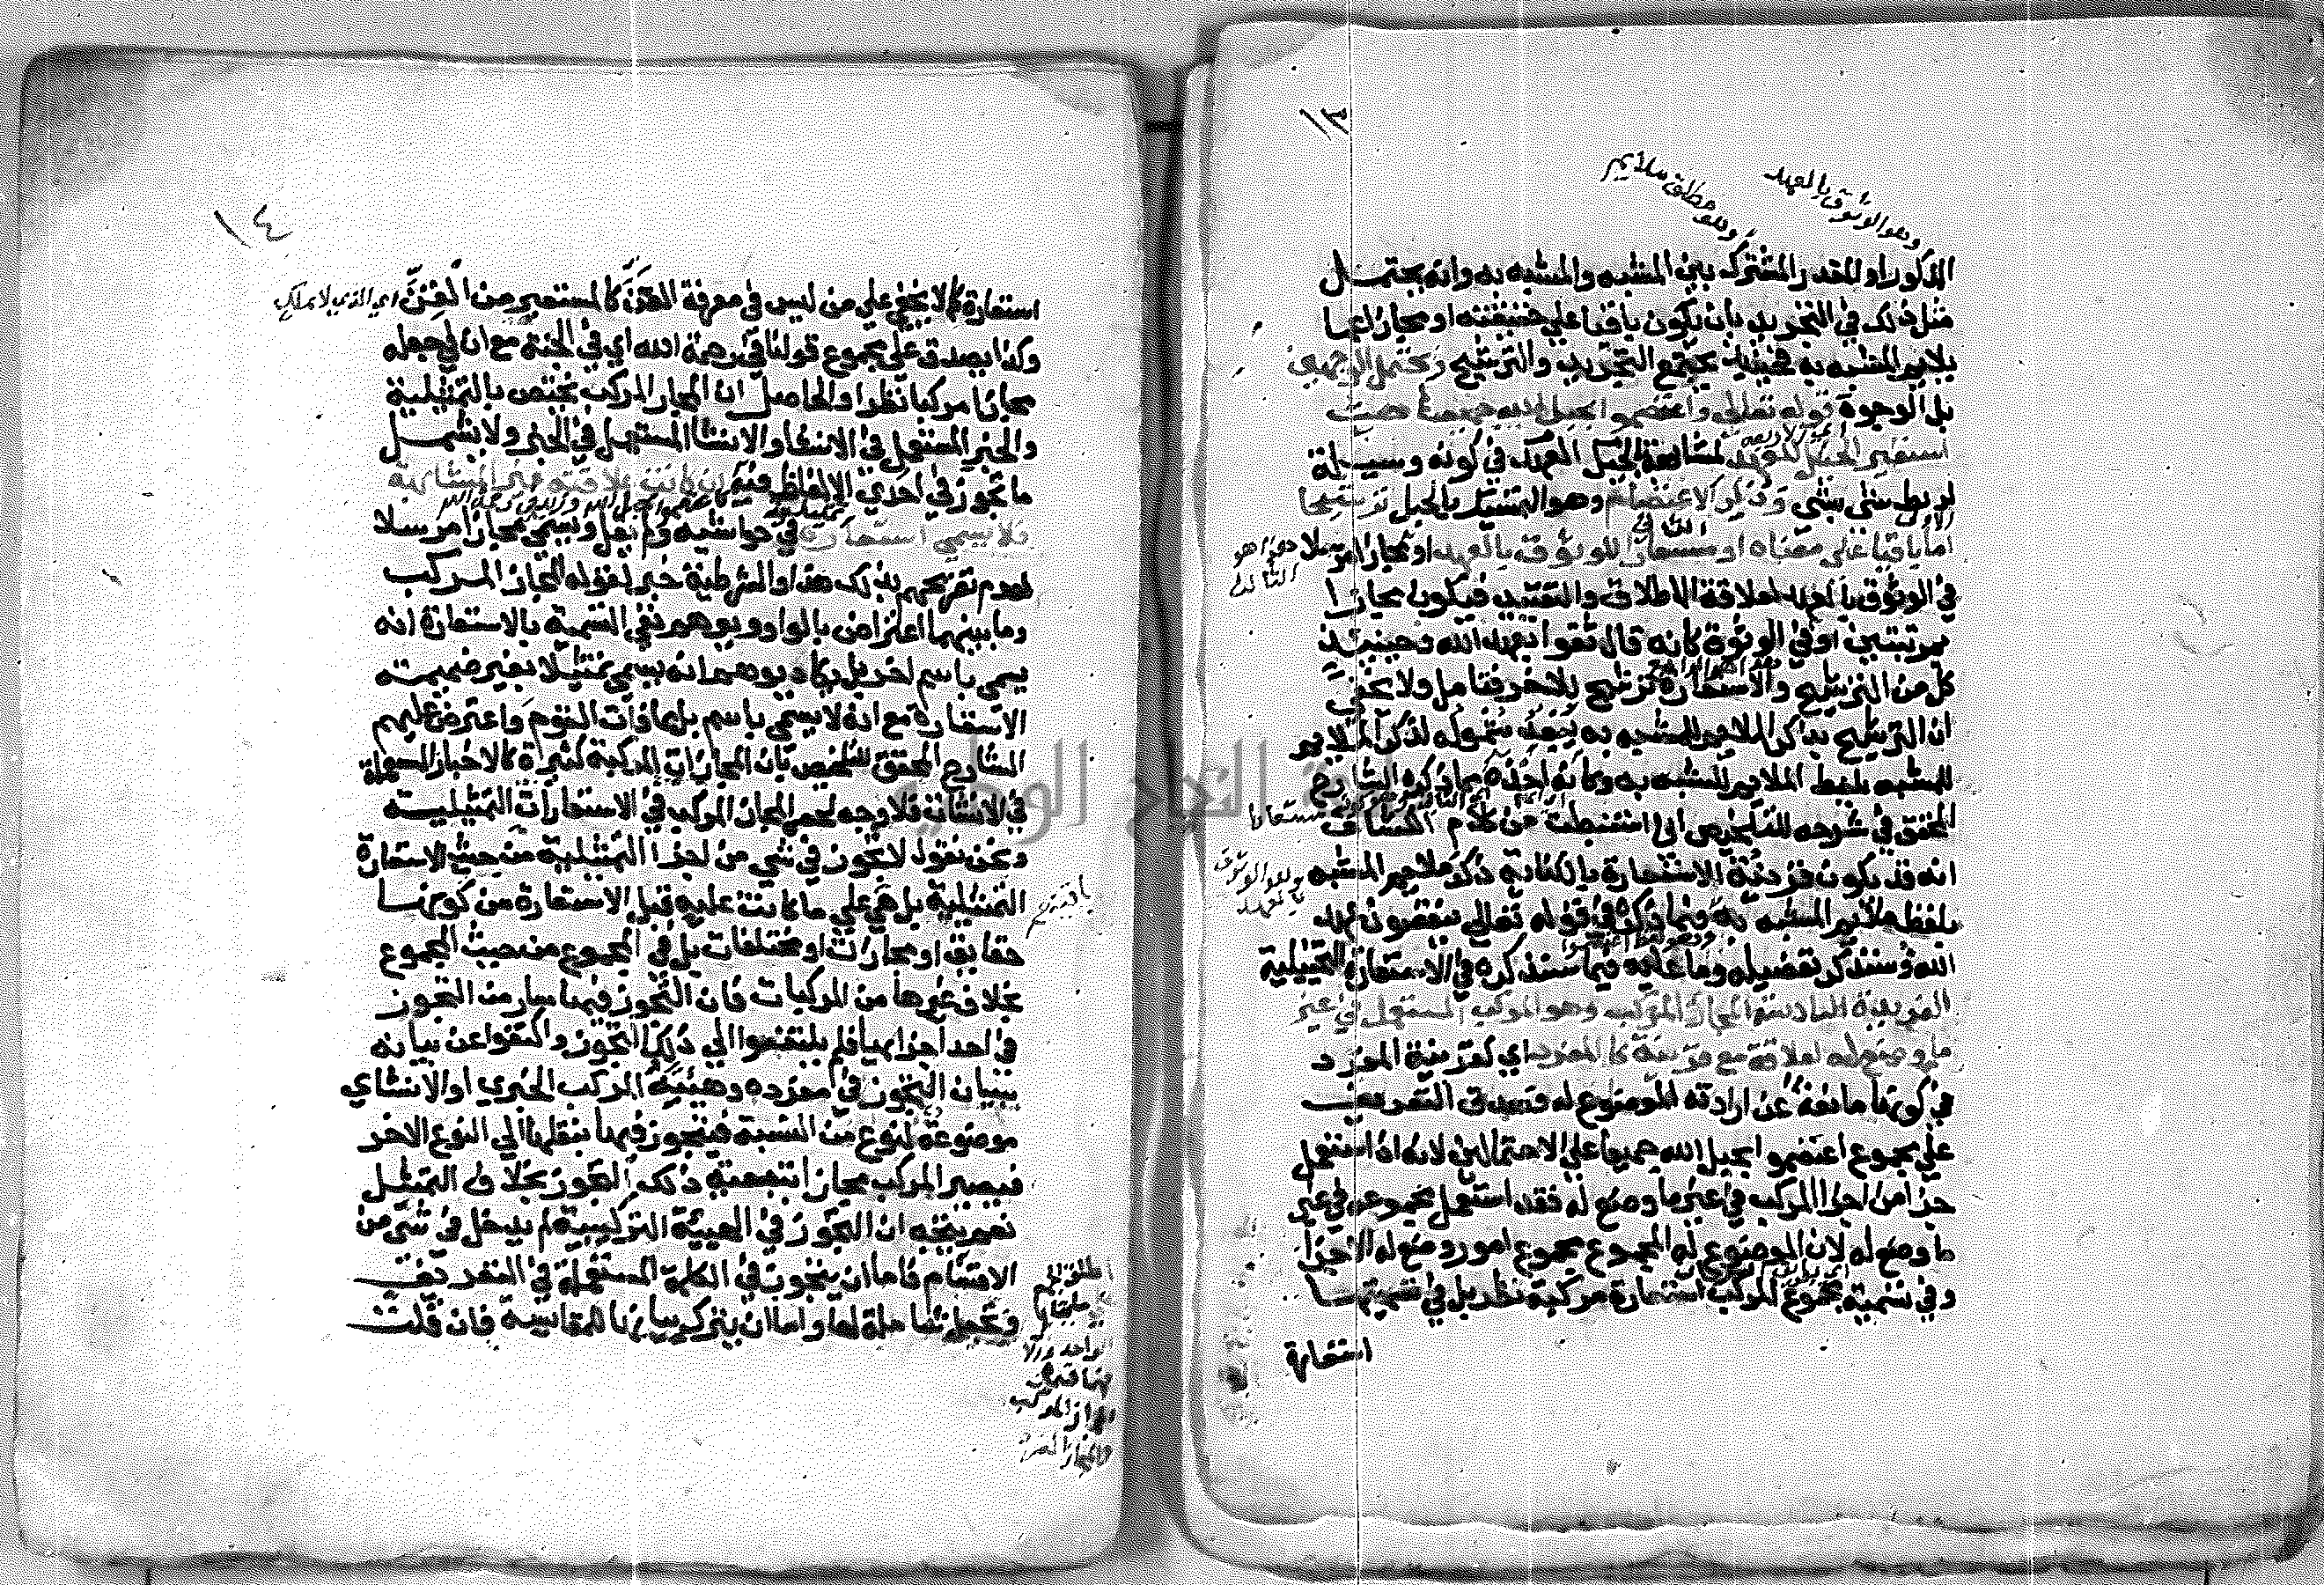 ١٣
وهو الوثوق بالعهد
وهو مطلق ملايم
المذكور او للقدر المشترك بين المشبه والمشبه به وانه يحتمل
مثل ذلك في التجريد بان يكون باقيا على حقيقته او مجازا عما
يلايم المشبه به فحينئذ يجتمع التجريد والترشيح ويحتمل الوجهين
بل الوجوه قوله تعالى واعتصموا بحبل الله جميعا حيث
استعير الحبل للعهد لمشابهة الحبل العهد في كونه وسيلة
لربط شئ بشئ وذكر الاعتصام وهو التمسك بالحبل ترشيحا
اما باقيا على معناه او مستعارا للوثوق بالعهد او مجازا مرسلا
في الوثوق بالعهد لعلاقة الاطلاق والتقييد فيكون مجازا
بمرتبتين او في الوثوق كانه قال ثقوا بعهد الله وحينئذ
كل من الترشيح والاستعارة ترشيح للاخر فتامل ولا يخفى
ان الترشيح بذكر الملايم للمشبه به يبعد شموله لذكر الملايم
للمشبه بلفظ الملايم للمشبه به وكانه اخذه مما ذكره الشارح
المحقق في شرحه للتلخيص اني استنبطت من كلام الكشاف
انه قد يكون قرينة الاستعارة بالكناية ذكر ملايم المشبه
بلفظ ملايم المشبه به فيما ذكره في قوله تعالى ينقضون عهد
الله وسنذكر تفصيله وما عليه فيما سنذكره في الاستعارة التخييلية
الفريدة السادسة المجاز المركب وهو المركب المستعمل في غير
ما وضع له لعلاقة مع قرينة كالمفرد اي كقرينة المفرد
في كونها مانعة عن ارادته الموضوع له وصدق التعريف
على مجموع اعتصموا بحبل الله جميعا على الاحتمالين لانه اذا استعمل
جزا من اجزا المركب في غير ما وضع له فقد استعمل مجموعه في غير
ما وضع له لان الموضوع له المجموع مجموع امور وضع له الاجزا
وفي تسمية مجموع المركب استعارة مركبة نظر بل في تسميتها
استعارة
١٤
استعارة كما لا يخفى على من ليس في معرفة الفن كالمستعير من الفن اي الذي لا يملك
وكذا يصدق على مجموع قولنا في رحمة الله اي في الجنة مع ان في جعله
مجازا مركبا نظرا والحاصل ان المجاز المركب يختص بالتمثيلية
والخبر المستعمل في الانشا والانشا المستعمل في الخبر ولا يشمل
ما تجوز في احدى الالفاظ فيه ان كانت علاقته غير المشابهة
فلا يسمى استعارة في حواشيه ولم يقل ويسمى مجازا مرسلا
لعدم تصريحهم بذلك هذا والشرطية خبر لقوله المجاز المركب
وما بينهما اعتراض بالواو ويوهم نفي التسمية بالاستعارة انه
يسمى باسم اخر بل يكاد يوهم انه يسمى تمثيلا بغير ضميمته
الاستعارة مع انه لا يسمى باسم بل هافات القوم واعترض عليهم
الشارح المحقق للتلخيص بان المجازات المركبة كثيرة كالاخبار المستعملة
في الانشات فلا وجه لحصر المجاز المركب في الاستعارات التمثيلية
ونحن نقول لا تجوز في شي من اجزا التمثيلية من حيث الاستعارة
التمثيلية بل هي على ما كانت عليه قبل الاستعارة من كونها
حقايق او مجازات او مختلفات بل في المجموع من حيث المجموع
بخلاف غيرها من المركبات فان التجوز فيها سار من التجوز
في احد اجزايها فلم يلتفتوا الى ذلك التجوز واكتفوا عن بيانه
ببيان التجوز في مفرده وهيئة المركب الخبري او الانشاي
موضوعة لنوع من النسبة فيتجوز فيها بنقلها الى النوع الاخر
فيصير المركب مجازا بتبعية ذلك التجوز بخلاف التمثيل
نعم يتجه ان التجوز في الهيئة التركيبية لم يدخل في شئ من
الاقسام فاما ان يتجوز في الكلمة المستعملة في التعريف
وتجعل شاملة لها واما ان يترك بيانها للمقايسة فان قلت